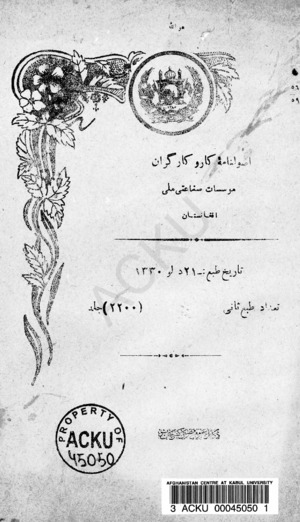 هو الله
اصولنامهٔ کار و کارگران
موسسات صناعتی ملی
افغانستان
تاریخ طبع :ـ ۲۱ دلو ۱۳۳۰
تعداد طبع ثانی (۲۲۰۰) جلد
ACKU
PROPERTY OF
ACKU
45050
AFGHANISTAN CENTRE AT KABUL UNIVERSITY
3 ACKU 00045050 1